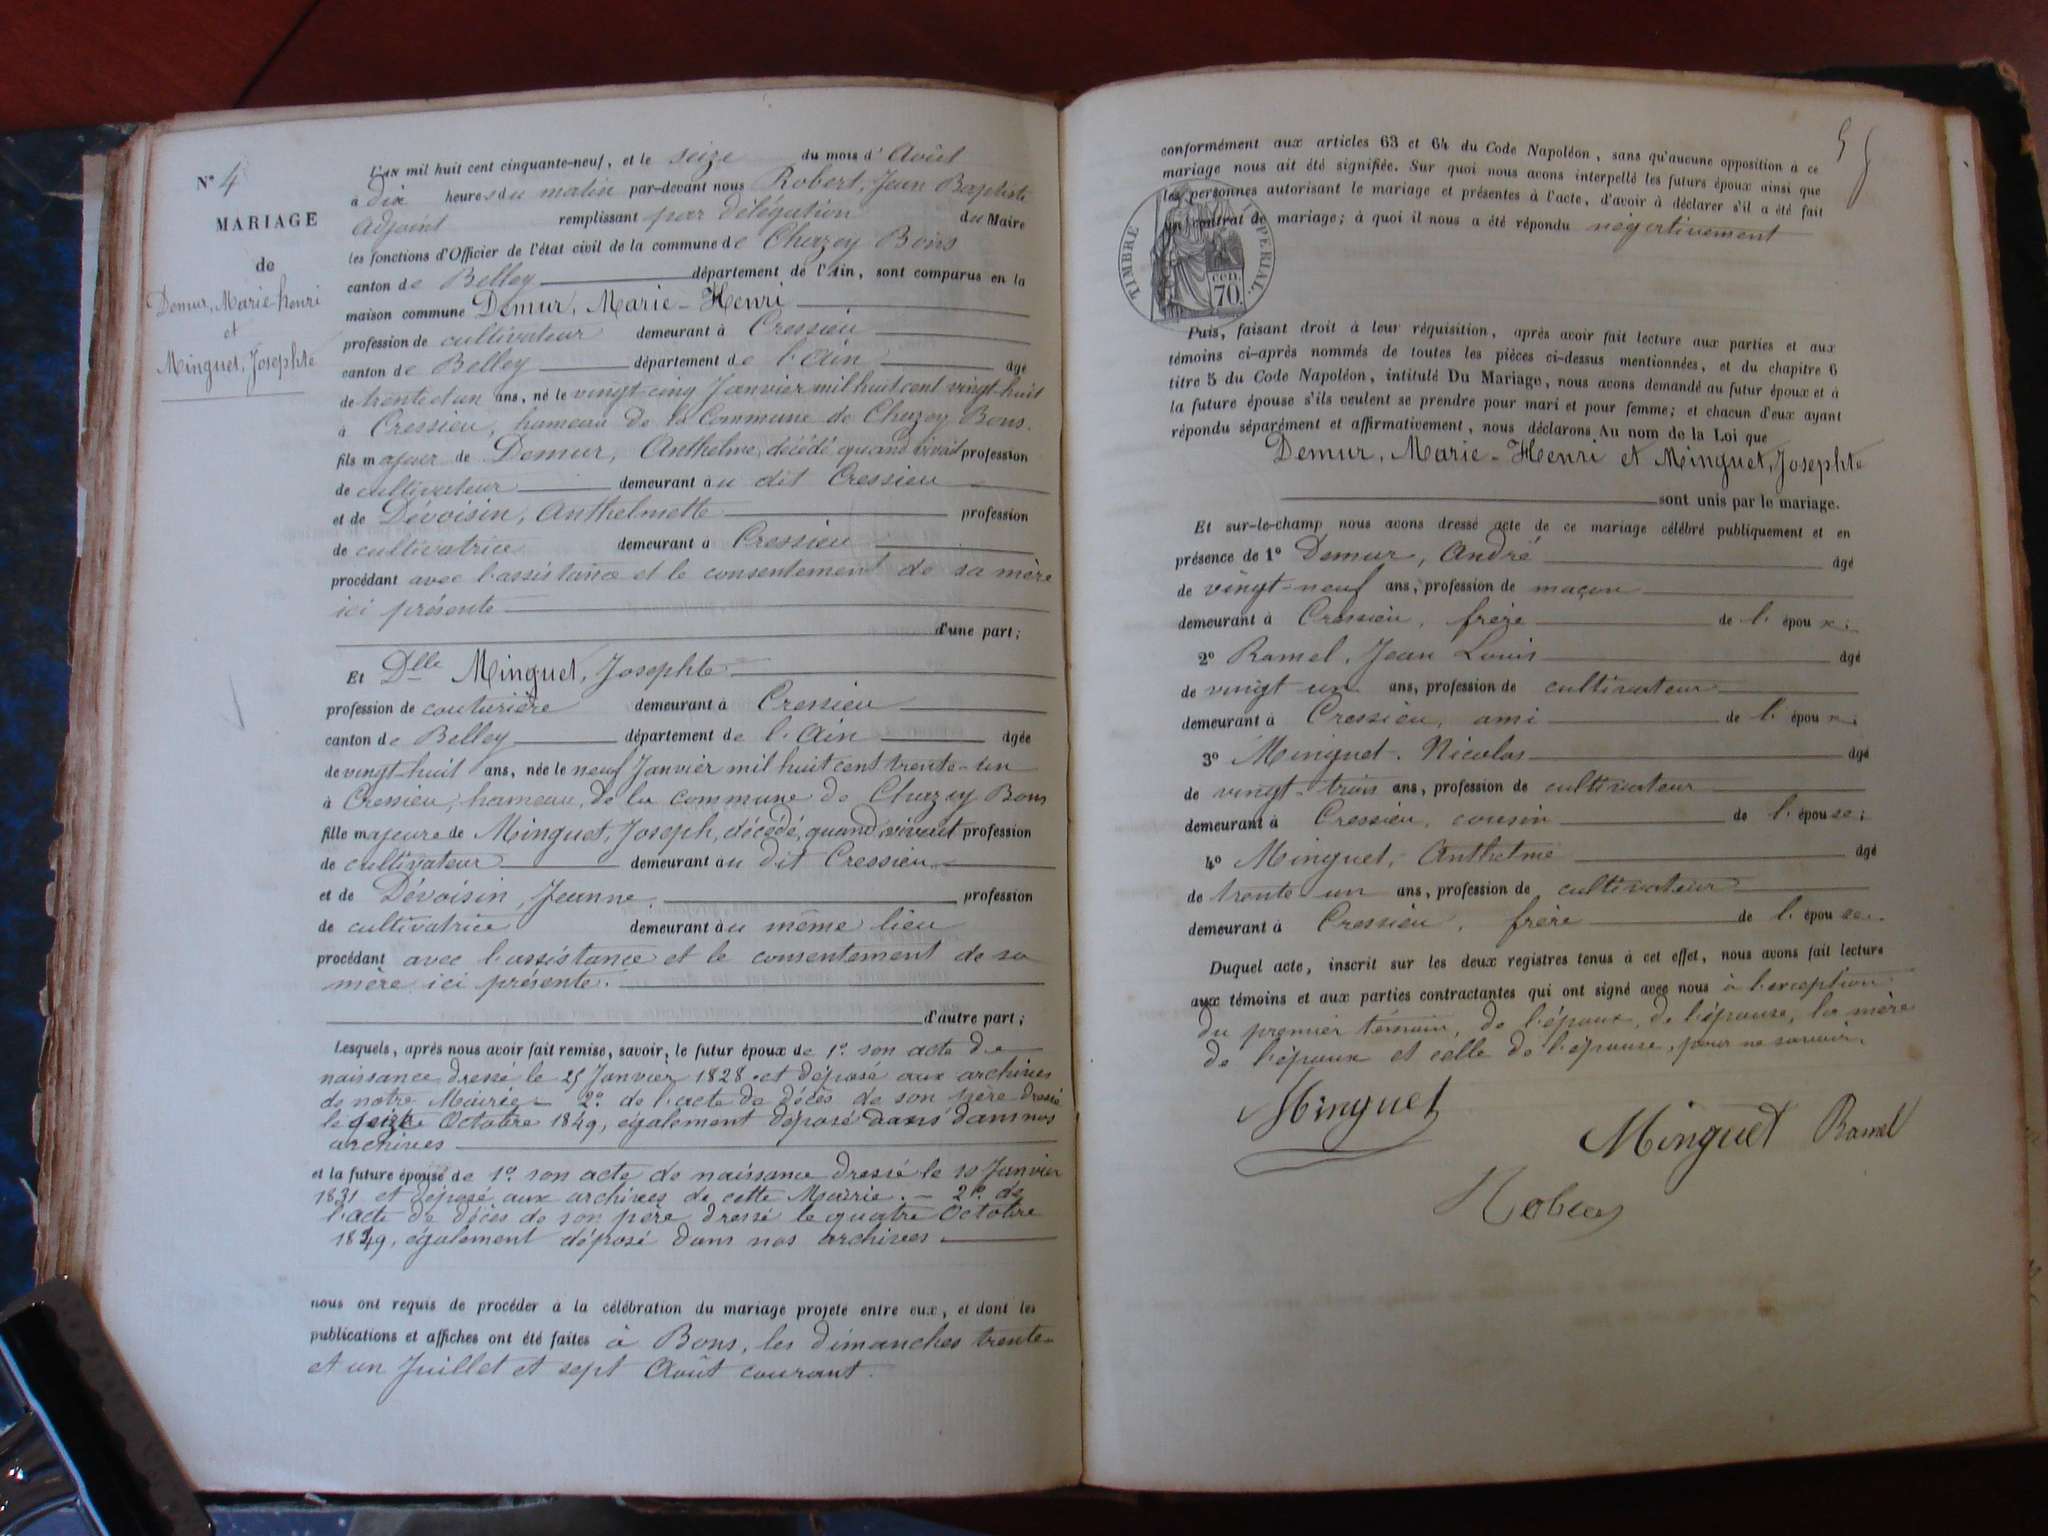 N° 4
MARIAGE
de
Demur, Marie-henri
et
Minguet, Josephte
L'an mil huit cent cinquante-neuf, et le seize du mois d'Août
à dix heures du matin par-devant nous Robert, Jean Baptiste
adjoint remplissant par délégation du Maire
les fonctions d'Officier de l'état civil de la commune de Chazey Bons
canton de Belley département de l'Ain, sont comparus en la
maison commune Demur, Marie-Henri
profession de cultivateur demeurant à Cressieu
canton de Belley département de l'Ain âgé
de trente et un ans, né le vingt-cinq Janvier mil huit cent vingt-huit
à Cressieu, hameau de la Commune de Chazey Bons.
fils majeur de Demur, Anthelme, décédé, quand vivait profession
de cultivateur demeurant au dit Cressieu
et de Dévoisin, Anthelmette profession
de cultivatrice demeurant à Cressieu
procédant avec l'assistance et le consentement de sa mère
ici présente
d'une part;
Et Dlle Minguet, Josephte
profession de couturière demeurant à Cressieu
canton de Belley département de l'Ain âgée
de vingt-huit ans, née le neuf Janvier mil huit cent trente-un
à Cressieu, hameau, de la commune de Chazey Bons
fille majeure de Minguet, Joseph, décédé, quand vivait profession
de cultivateur demeurant au dit Cressieu
et de Dévoisin, Jeanne profession
de cultivatrice demeurant au même lieu
procédant avec l'assistance et le consentement de sa
mère ici présente.
d'autre part;
Lesquels, après nous avoir fait remise, savoir, le futur époux de 1° son acte de
naissance dressé le 25 Janvier 1828 et déposé aux archives
de notre Mairie - 2° de l'acte de décès de son père dressé
le seize Octobre 1849, également déposé dans nos
archives
et la future épouse de 1° son acte de naissance dressé le 10 Janvier
1831 et déposé aux archives de cette Mairie. - 2° de
l'acte de décès de son père dressé le quatre Octobre
1849, également déposé dans nos archives
nous ont requis de procéder à la célébration du mariage projeté entre eux, et dont les
publications et affiches ont été faites à Bons, les dimanches trente-
et un Juillet et sept Août courant.
conformément aux articles 63 et 64 du Code Napoléon, sans qu'aucune opposition à ce
mariage nous ait été signifiée. Sur quoi nous avons interpellé les futurs époux ainsi que
les personnes autorisant le mariage et présentes à l'acte, d'avoir à déclarer s'il a été fait
un contrat de mariage; à quoi il nous a été répondu négativement
TIMBRE IMPERIAL.
CEN.
70.
Puis, faisant droit à leur réquisition, après avoir fait lecture aux parties et aux
témoins ci-après nommés de toutes les pièces ci-dessus mentionnées, et du chapitre 6
titre 5 du Code Napoléon, intitulé Du Mariage, nous avons demandé au futur époux et à
la future épouse s'ils veulent se prendre pour mari et pour femme; et chacun d'eux ayant
répondu séparément et affirmativement, nous déclarons Au nom de la Loi que
Demur, Marie-Henri et Minguet, Josephte
sont unis par le mariage.
Et sur-le-champ nous avons dressé acte de ce mariage célébré publiquement et en
présence de 1° Demur, André âgé
de vingt-neuf ans, profession de maçon
demeurant à Cressieu, frère de l'époux;
2° Ramel, Jean Louis âgé
de vingt un ans, profession de cultivateur
demeurant à Cressieu, ami de l'époux;
3° Minguet, Nicolas âgé
de vingt-trois ans, profession de cultivateur
demeurant à Cressieu, cousin de l'épouse;
4° Minguet, Anthelme âgé
de trente un ans, profession de cultivateur
demeurant à Cressieu, frère de l'épouse.
Duquel acte, inscrit sur les deux registres tenus à cet effet, nous avons fait lecture
aux témoins et aux parties contractantes qui ont signé avec nous à l'exception
du premier témoin, de l'époux, de l'épouse, la mère
de l'époux et celle de l'épouse, pour ne savoir.
Minguet
Minguet Ramel